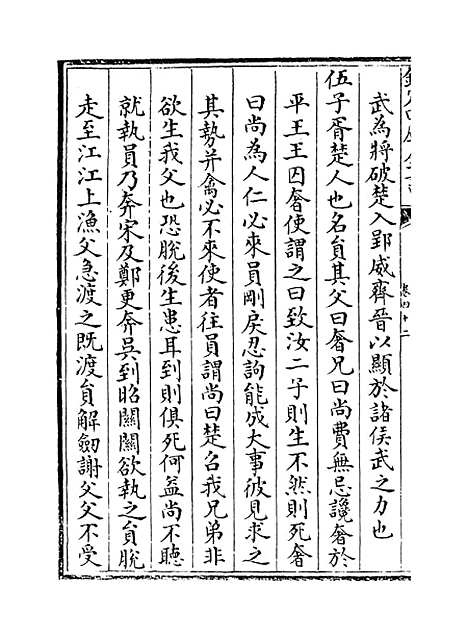 武為將破楚入郢威齊晉以顯於諸侯武之力也
伍子胥楚人也名員其父曰奢兄曰尚費無忌讒奢於
平王王囚奢使謂之曰致汝二子則生不然則死奢
曰尚為人仁必來員剛戾忍訽能成大事彼見求之
其勢并禽必不來使者往員謂尚曰楚召我兄弟非
欲生我父也恐脫後生患耳到則俱死何益尚不聽
就執員乃奔宋及鄭更奔吳到昭關關欲執之員脫
走至江江上漁父急渡之既渡員解劒謝父父不受
卷四十二